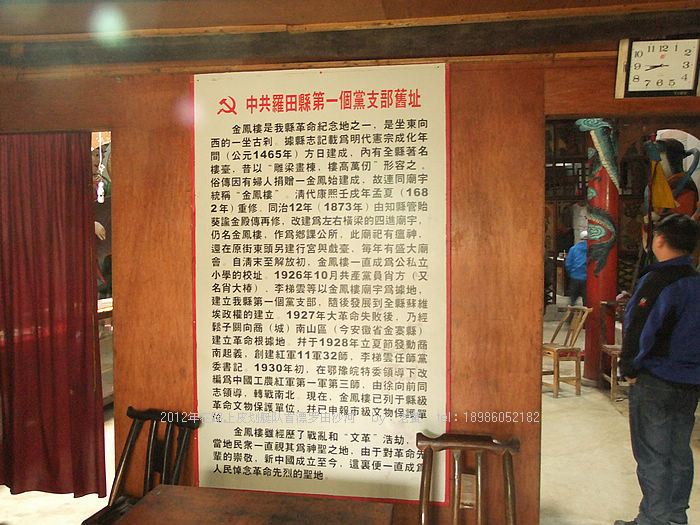 中共羅田縣第一個黨支部舊址
金鳳樓是我縣革命紀念地之一，是坐東向
西的一坐古刹。據縣志記載爲明代憲宗成化年
間（公元1465年）方日建成，內有全縣著名
樓臺，昔以“雕梁畫棟，樓高萬仞”形容之，
俗傳因有婦人捐贈一金鳳始建成，故連同廟宇
統稱“金鳳樓”。清代康熙壬戌年孟夏（168
2年）重修，同治12年（1873年）由知縣管貽
葵諭金殿傳再修，改建爲左右橫梁的四進廟宇，
仍名金鳳樓，作爲鄉課公所，此廟祀有瘟神，
還在原街東頭另建行宮與戲臺，每年有盛大廟
會。自清末至解放初，金鳳樓一直成爲公私立
小學的校址。1926年10月共產黨員肖方（又
名肖大椿），李梯雲等以金鳳樓廟宇爲據地，
建立我縣第一個黨支部，隨後發展到全縣蘇維
埃政權的建立。1927年大革命失敗後，乃經
鬆子關向商（城）南山區（今安徽省金寨縣）
建立革命根據地。幷于1928年立夏節發動商
南起義，創建紅軍11軍32師，李梯雲任師黨
委書記。1930年初，在鄂豫皖特委領導下改
編爲中國工農紅軍第一軍第三師，由徐向前同
志領導，轉戰南北。現在，金鳳樓已列爲縣級
革命文物保護單位，幷已申報市級文物保護單
金鳳樓雖經歷了戰亂和“文革”浩劫，
當地民衆一直視其爲神聖之地，由于對革命先
輩的崇敬，新中國成立至今，這裏便一直成爲
人民悼念革命先烈的聖地。
10 11 12 1 2 3 4 5 6 7 8 9
2012年
tel：18986052182